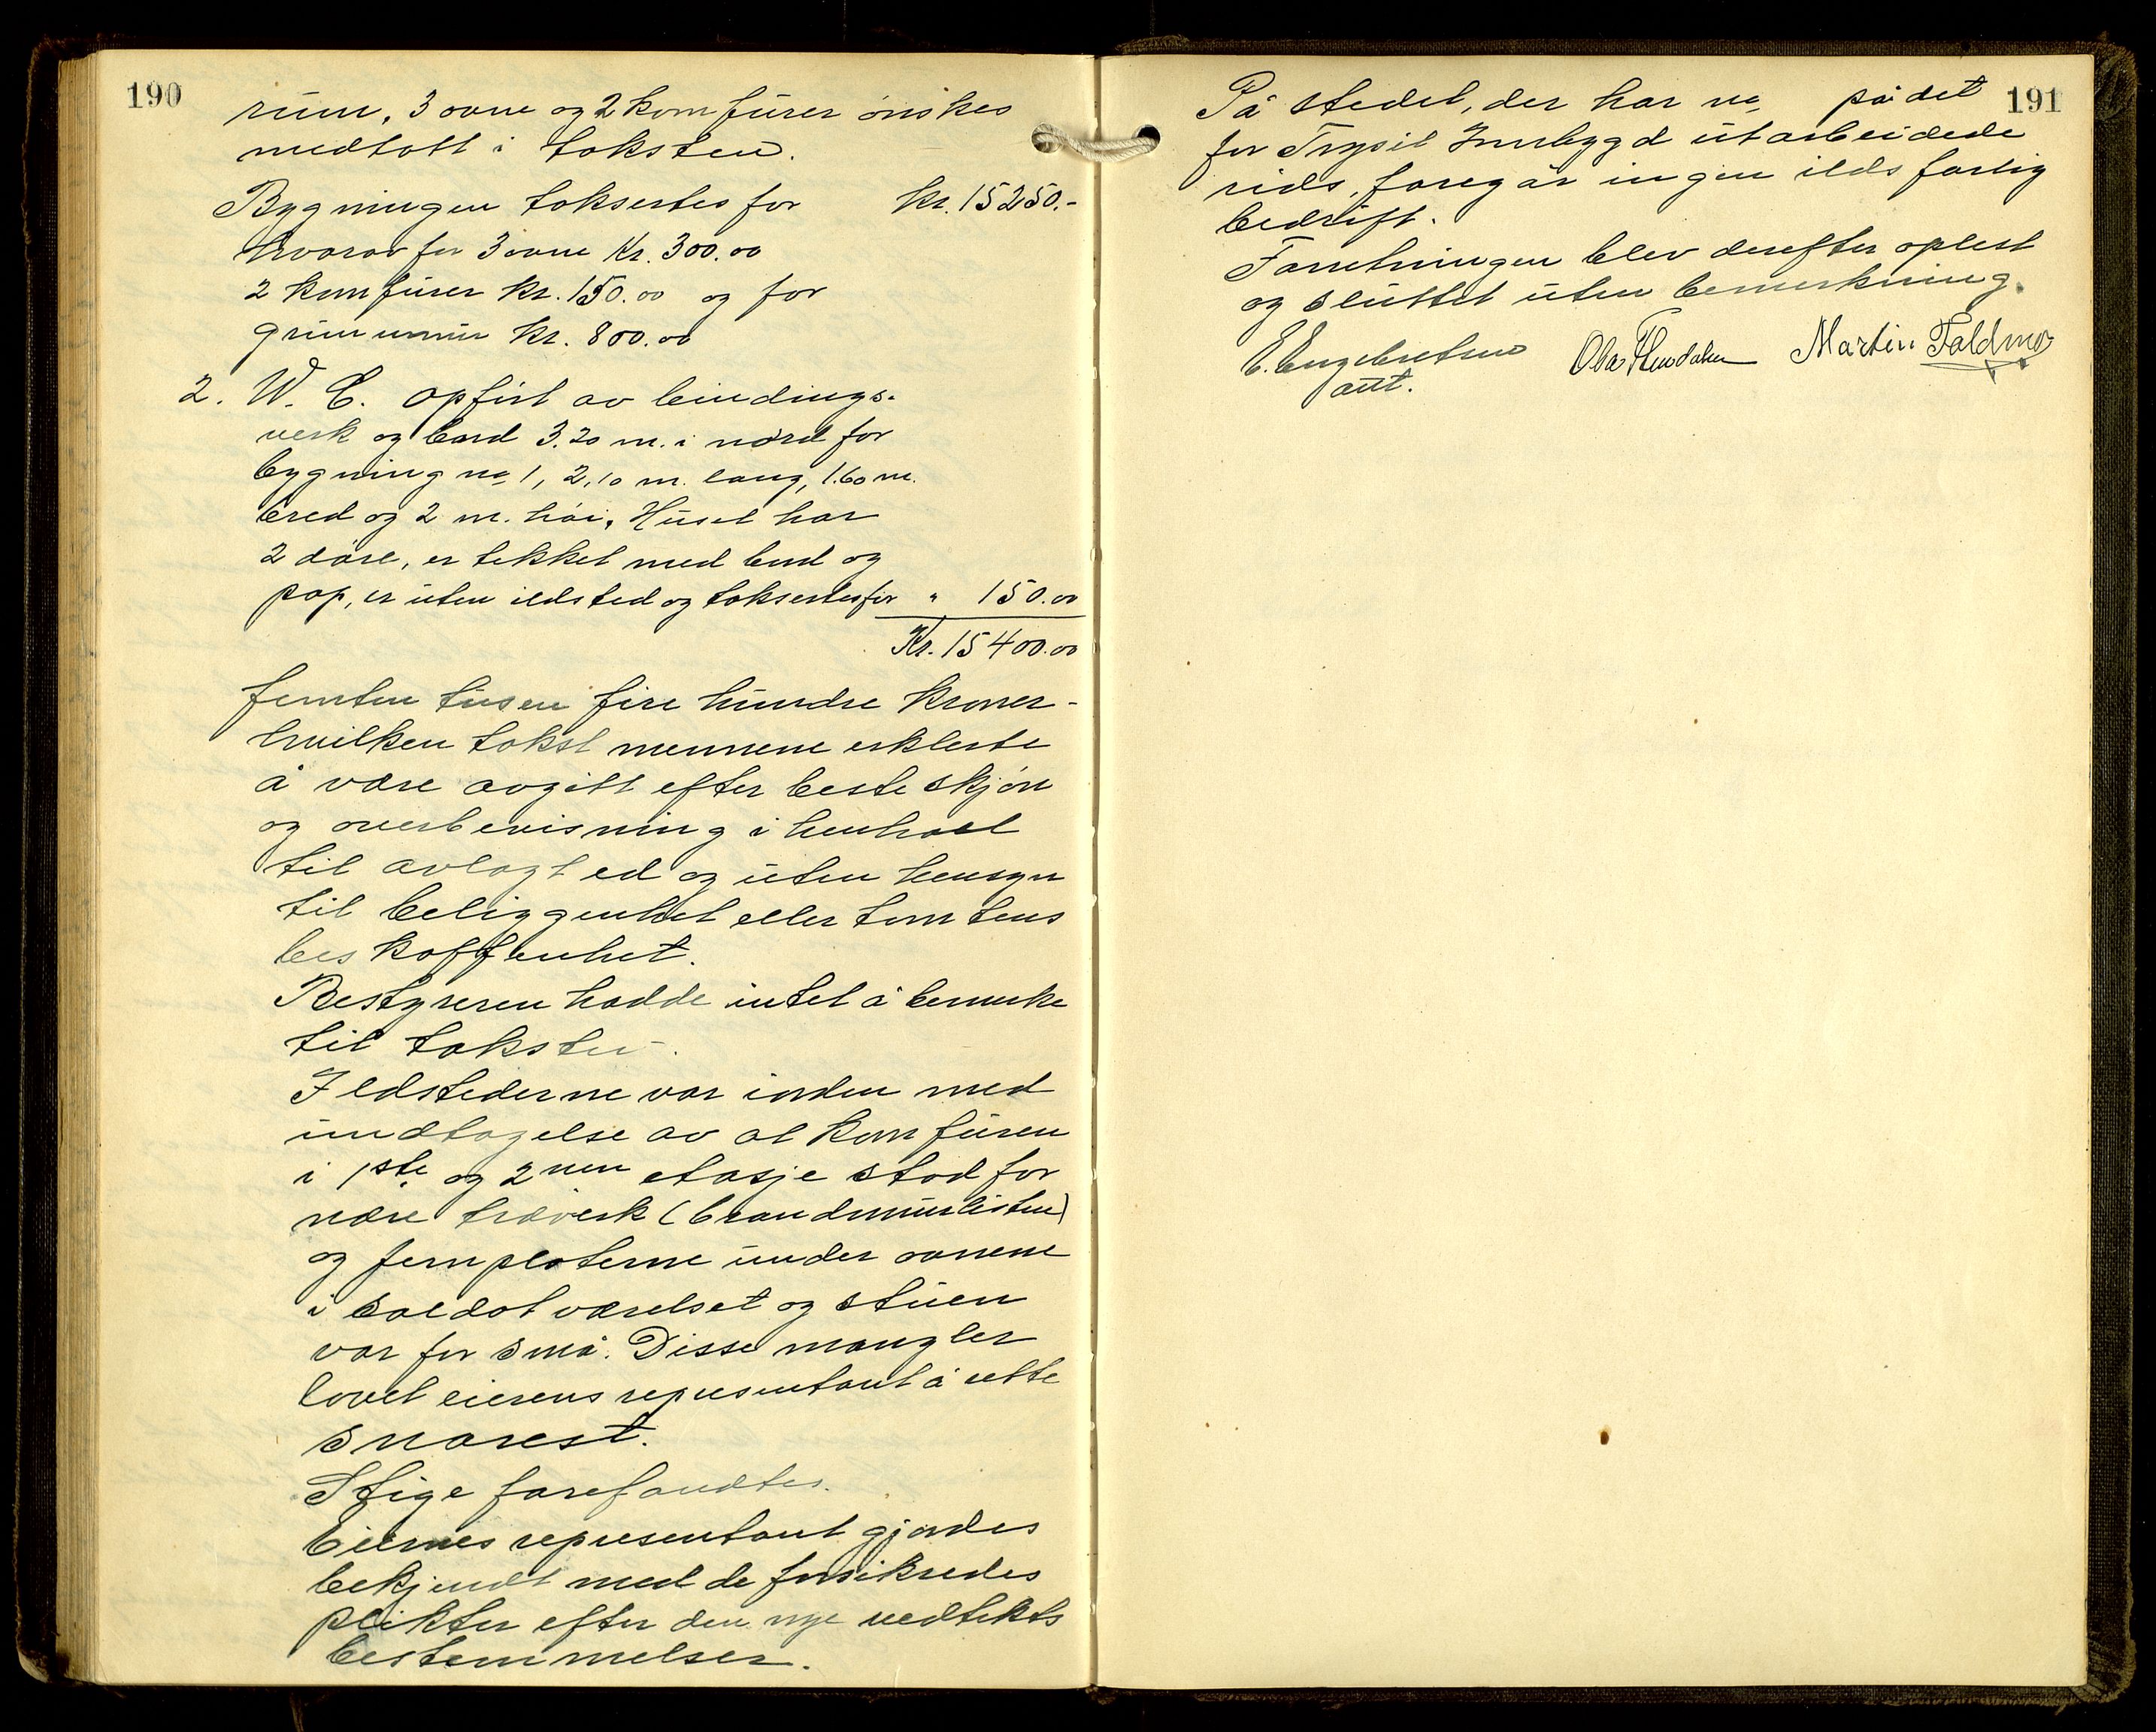 190
rum, 3 ovne og 2 komfurer ønskes
medtatt i taksten.
Bygningen taksertes for kr. 15250.-
hvorav for 3 ovne Kr. 300.00
2 komfurer kr. 150.00 og for
grunnmur kr. 800.00
2. W. C. opført av bindings-
verk og bord 3.20 m. i nord for
bygning no 1, 2,10 m. lang, 1.60 m.
bred og 2 m. høi. Huset har
2 døre, er tekket med bord og
pap, er uten ildsted og taksertes for " 150.00
Kr. 15400.00
femten tusen fire hundre kroner -
hvilken takst mennene erklerte
å være avgitt efter beste skjøn
og overbevisning i henhold
til avlagt ed og uten hensyn
til beliggenhet eller tomtens
beskaffenhet.
Bestyreren hadde intet å bemerke
til taksten.
Ildstederne var iorden med
undtagelse av at komfuren
i 1ste og 2nen etasje stod for
nære treverk (brandmurlisten)
og jernplaterne under ovnene
i soldatværelset og stuen
var for små. Disse mangler
lovet eierens representant å rette
snarest.
Stige forefandtes.
Eiernes representant gjordes
bekjendt med de forsikredes
plikter efter den nye vedtekts
bestemmelser.
191
På stedet, der har no på det
for Trysil Innbygd utarbeidede
rids, foregår ingen ildsfarlig
bedrift.
Forretningen blev derefter oplest
og sluttet uten bemerkning.
E. Engebretsen Ola Martin Galdmo
aut.